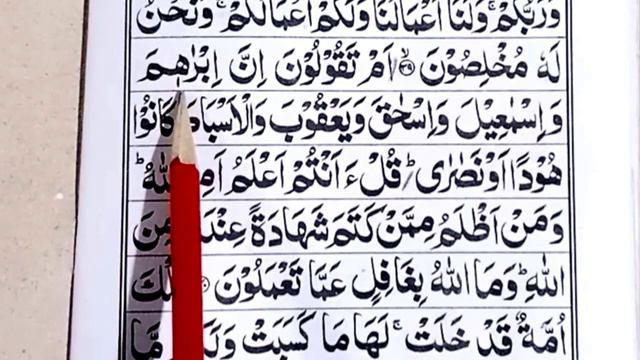 وَرَبُّكُمْ ۚ وَلَنَآ اَعْمَالُنَا وَلَكُمْ اَعْمَالُكُمْ ۚ وَنَحْنُ
لَهٗ مُخْلِصُوْنَ ﴿۱۳۹﴾ اَمْ تَقُوْلُوْنَ اِنَّ اِبْرٰهٖمَ
وَاِسْمٰعِيْلَ وَاِسْحٰقَ وَيَعْقُوْبَ وَالْاَسْبَاطَ كَانُوْا
هُوْدًا اَوْ نَصٰرٰى ؕ قُلْ ءَاَنْتُمْ اَعْلَمُ اَمِ اللّٰهُ ؕ
وَمَنْ اَظْلَمُ مِمَّنْ كَتَمَ شَهَادَةً عِنْدَهٗ مِنَ
اللّٰهِ ؕ وَمَا اللّٰهُ بِغَافِلٍ عَمَّا تَعْمَلُوْنَ تِلْكَ
اُمَّةٌ قَدْ خَلَتْ ۚ لَهَا مَا كَسَبَتْ وَلَكُمْ مَّا